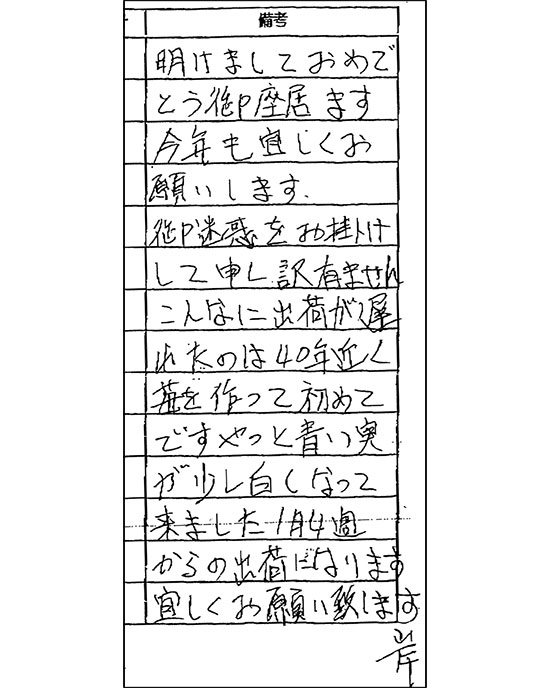 備考
明けましておめで
とう御座居ます
今年も宜しくお
願いします.
御迷惑をお掛け
して申し訳有ません
こんなに出荷が遅
れたのは40年近く
苺を作って初めて
ですやっと青い実
が少し白くなって
来ました1月4週
からの出荷になります
宜しくお願い致します
岸